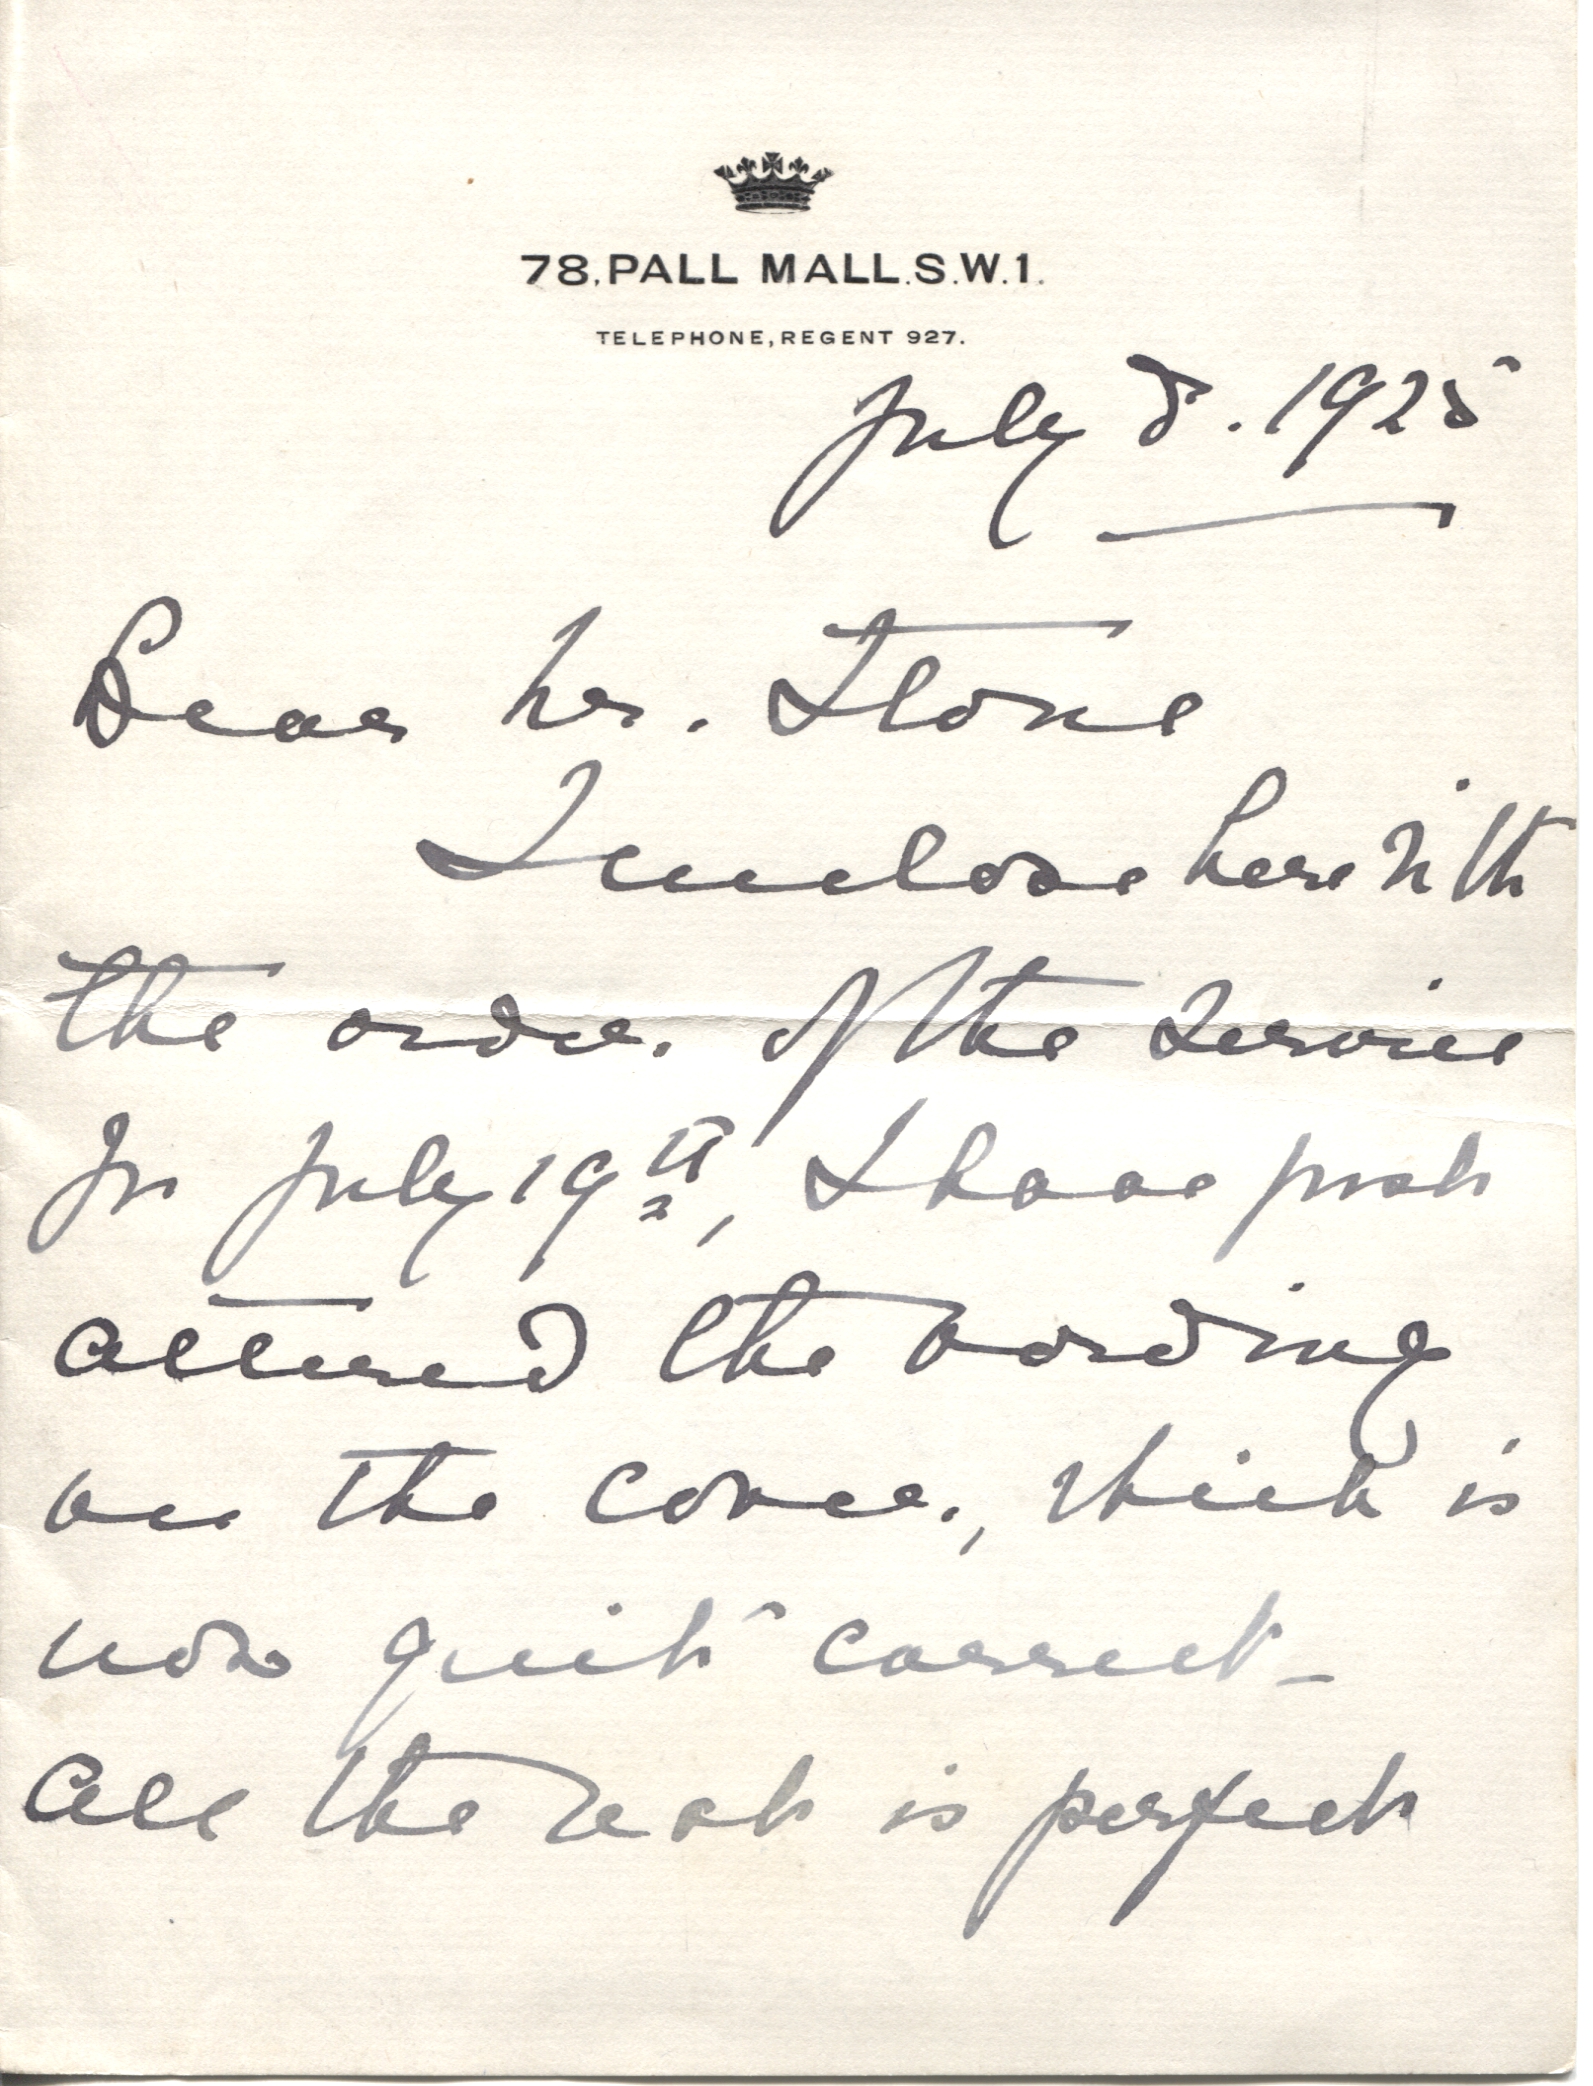 78, PALL MALL. S.W.1.
TELEPHONE, REGENT 927.
July 8. 1925
Dear Mr. Stone
I enclose herewith
the order of the service
for July 19th, I have just
altered the wording
on the cover, which is
now quite correct -
all the rest is perfect